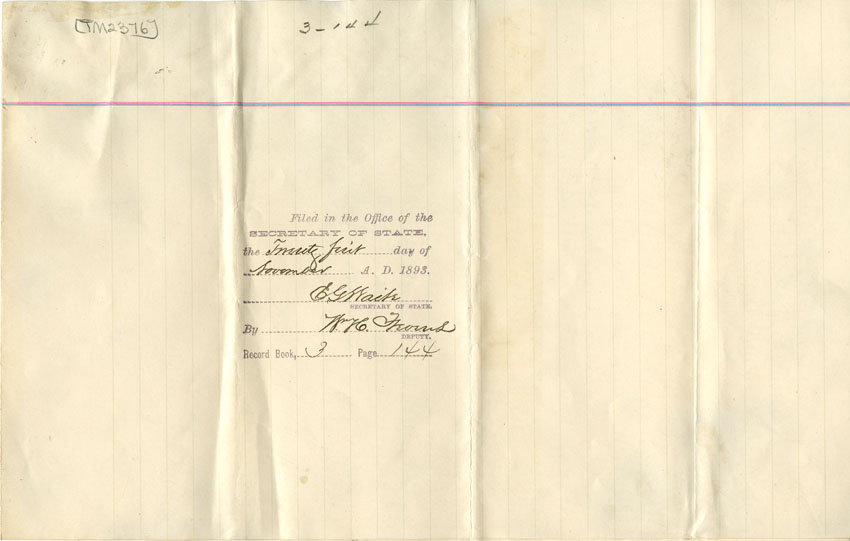 [TM2376]
3-144
Filed in the Office of the
SECRETARY OF STATE,
the Twenty first day of
November A. D. 1893.
E. G. Waite
SECRETARY OF STATE.
By W. H.
DEPUTY.
Record Book, 3 Page 144